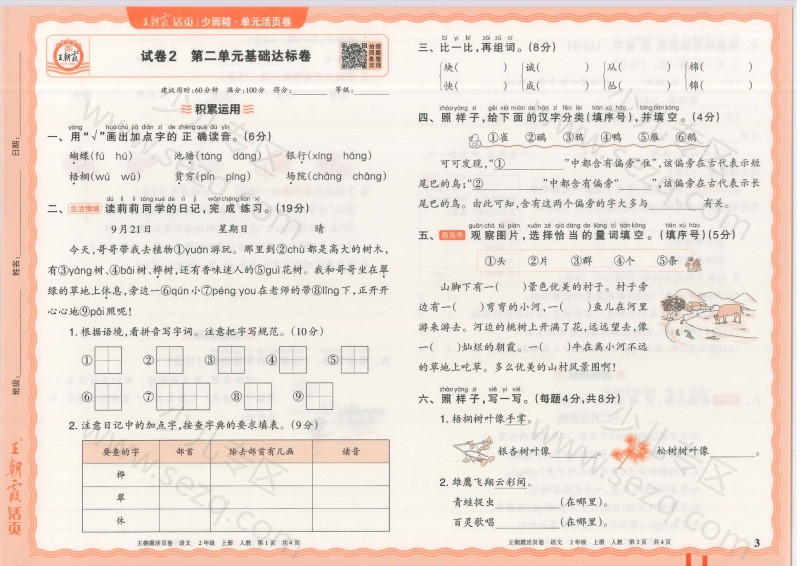 王朝霞 活页 | 少而精·单元活页卷
王朝霞
试卷2 第二单元基础达标卷
建议用时:60分钟 满分:100分 得分:______ 等级:______
积累运用
yòng huà chū jiā diǎn zì de zhèng què dú yīn
一、用“√”画出加点字的正确读音。(6分)
蝴蝶(fú hú) 池塘(táng dáng) 银行(xíng háng)
梧桐(wú wǔ) 贫穷(pín píng) 场院(cháng chǎng)
dú lì li tóng xué de rì jì wán chéng liàn xí
二、生活情境 读莉莉同学的日记,完成练习。(19分)
9月21日 星期日 晴
今天,哥哥带我去植物①yuán游玩。那里到②chù都是高大的树木,
有③yáng树、④bǎi树、桦树,还有香味迷人的⑤guì花树。我和哥哥坐在翠
绿的草地上休息,旁边一⑥qún小⑦péng you在老师的带⑧lǐng下,正开开
心心地⑨pāi照呢!
1.根据语境,看拼音写字词。注意把字写规范。(10分)
① ② ③ ④ ⑤
⑥ ⑦ ⑧ ⑨
2.注意日记中的加点字,按查字典的要求填表。(9分)
要查的字 部首 除去部首有几画 读音
桦
翠
休
王朝霞活页卷 语文 2年级 上册 人教 第1页 共4页
bǐ yì bǐ zài zǔ cí
三、比一比,再组词。(8分)
块( ) 诚( ) 从( ) 棉( )
快( ) 成( ) 丛( ) 锦( )
zhào yàng zi gěi xià miàn de hàn zì fēn lèi tián xù hào bìng tián kòng
四、照样子,给下面的汉字分类(填序号),并填空。(4分)
①雀 ②鸥 ③鸡 ④鸭 ⑤雁 ⑥鹅
可可发现,“①______”中都含有偏旁“隹”,该偏旁在古代表示短
尾巴的鸟;“②______”中都含有偏旁“______”,该偏旁在古代表示长
尾巴的鸟。由此可知,含有这两个偏旁的字大多与______有关。
guān chá tú piàn xuǎn zé qià dàng de liàng cí tián kòng tián xù hào
五、青岛市 观察图片,选择恰当的量词填空。(填序号)(5分)
①头 ②片 ③群 ④个 ⑤条
山脚下有一( )景色优美的村子。村子旁
边有一( )弯弯的小河,一( )鱼儿在河里
游来游去。河边的桃树上开满了花,远远望去,像
一( )灿烂的朝霞。一( )牛在离小河不远
的草地上吃草。多么优美的山村风景图啊!
zhào yàng zi xiě yi xiě
六、照样子,写一写。(每题4分,共8分)
1.梧桐树叶像手掌。
银杏树叶像______。 松树树叶像______。
2.雄鹰飞翔云彩间。
青蛙捉虫______(在哪里)。
百灵歌唱______(在哪里)。
王朝霞活页卷 语文 2年级 上册 人教 第2页 共4页
3
日期:
姓名:
班级:
王朝霞活页
小儿专区
www.sezq.com